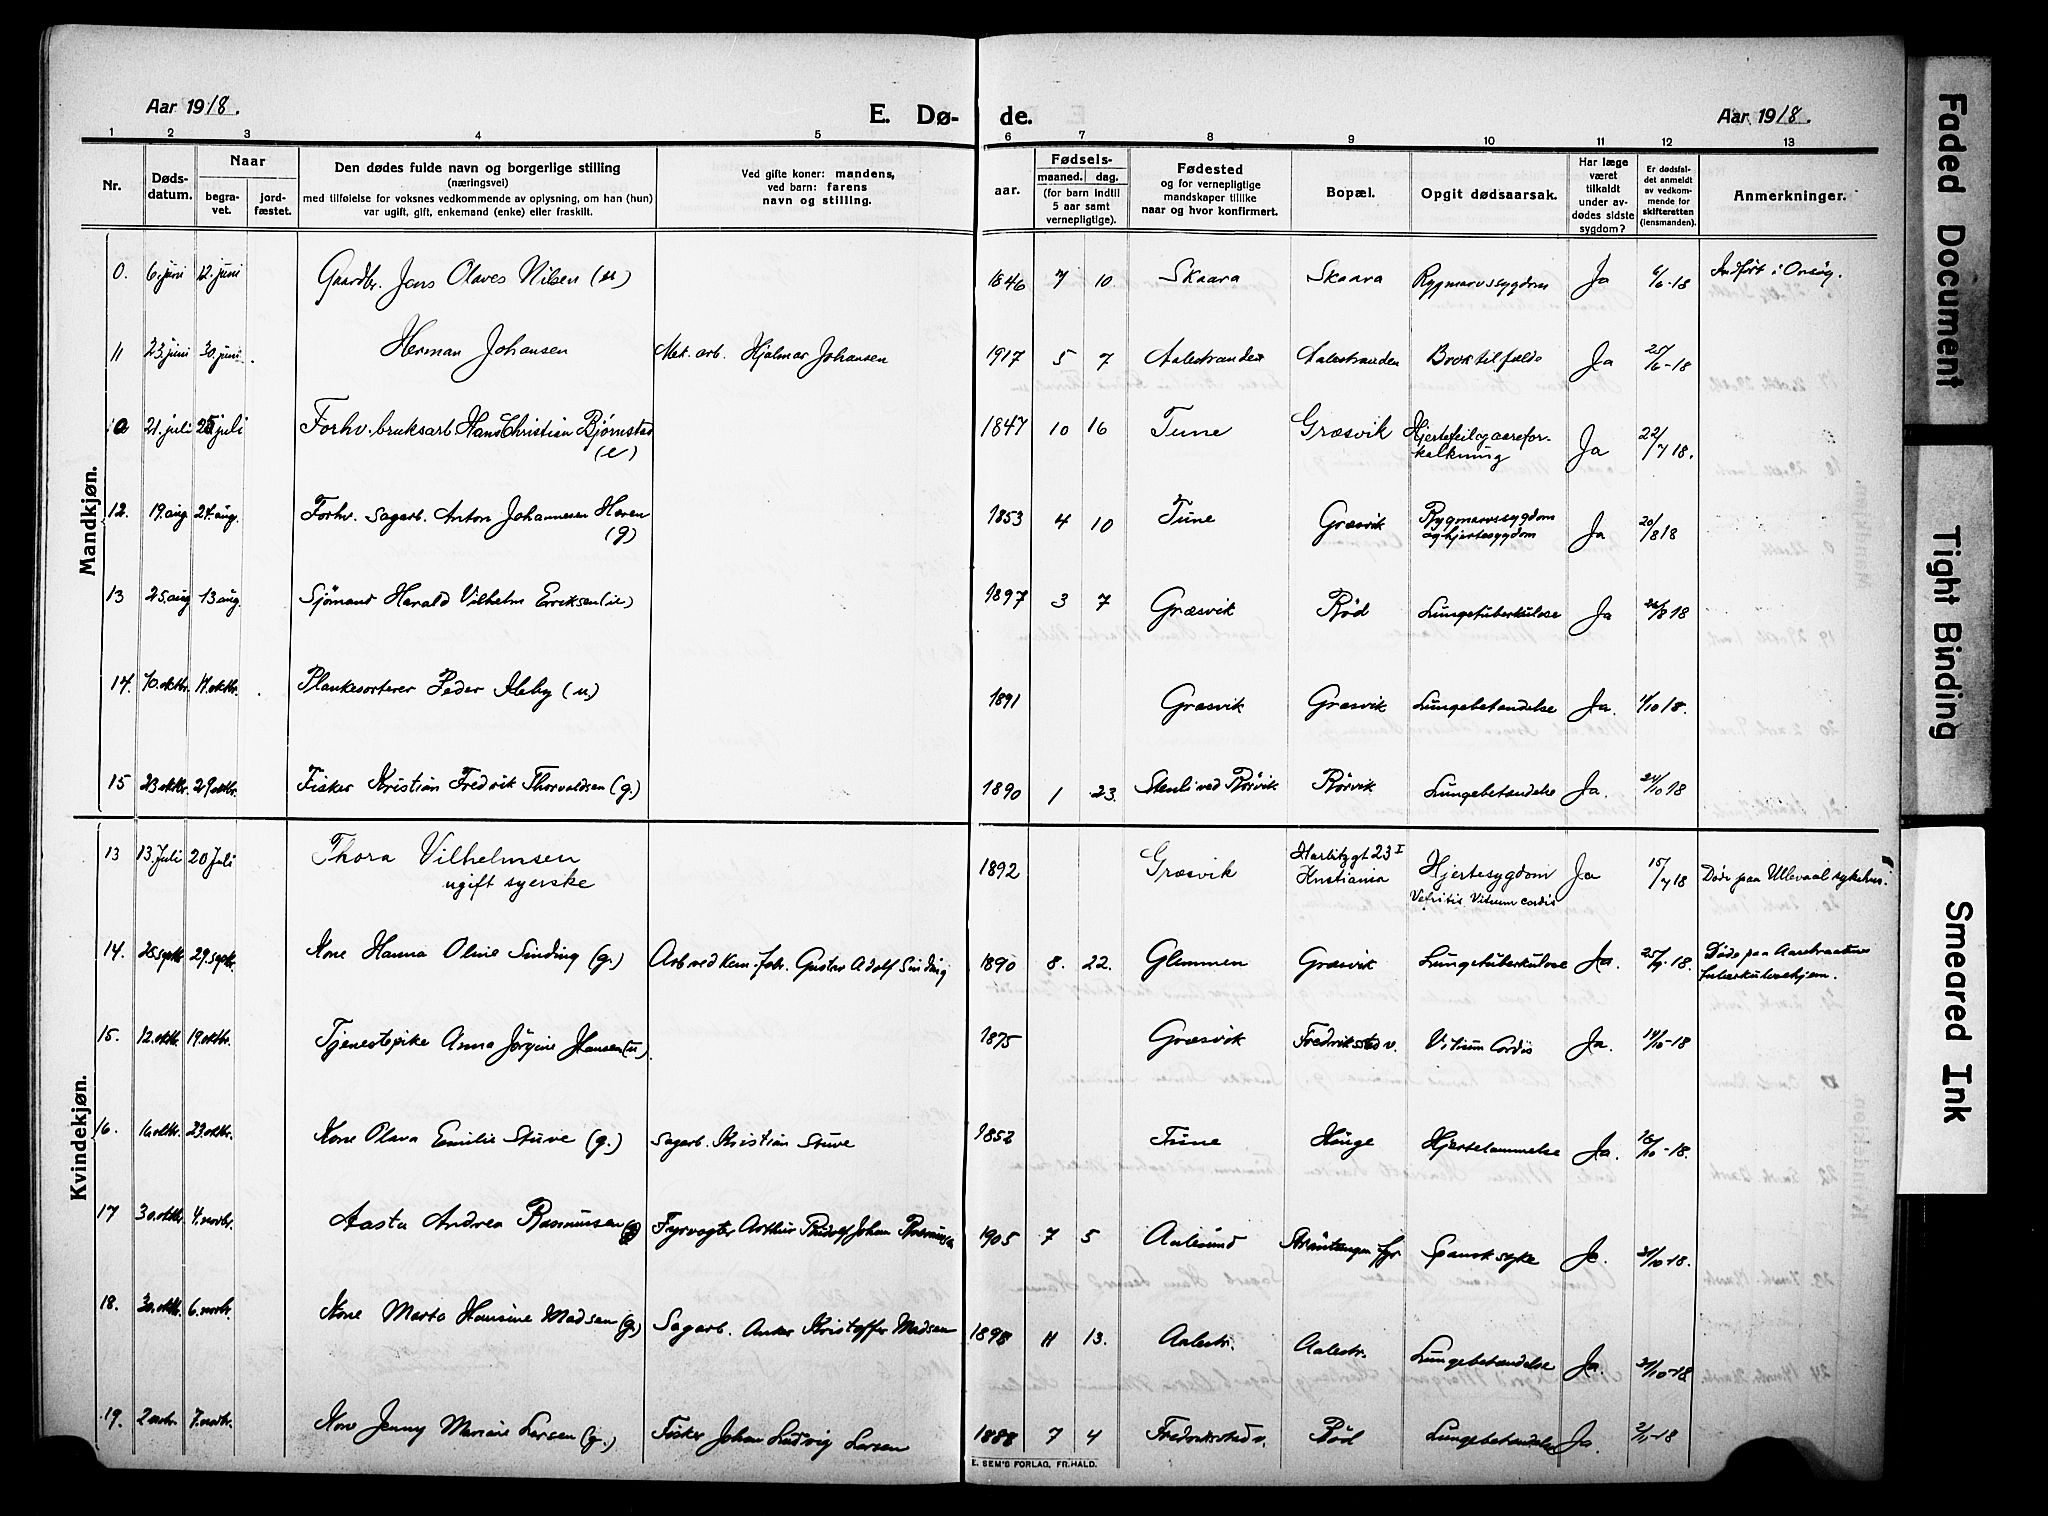 Aar 1918. E. Dø- de. Aar 1918.
1 2 3 4 5 6 7 8 9 10 11 12 13
Nr.
Døds-
datum.
Naar
begra-
vet.
jord-
fæstet.
Den dødes fulde navn og borgerlige stilling
(næringsvei)
med tilføielse for voksnes vedkommende av oplysning, om han (hun)
var ugift, gift, enkemand (enke) eller fraskilt.
Ved gifte koner: mandens,
ved barn: farens
navn og stilling.
Fødsels-
aar. maaned. dag.
(for barn indtil
5 aar samt
vernepligtige).
Fødested
og for vernepligtige
mandskaper tillike
naar og hvor konfirmert.
Bopæl.
Opgit dødsaarsak.
Har læge
været
tilkaldt
under av-
dødes sidste
sygdom?
Er dødsfal-
det anmeldt
av vedkom-
mende for
skifteretten
(lensmanden).
Anmerkninger.
Mandkjøn.
0. 6. juni 12. juni Gaardbr. Jens Olaves Nilsen (u) 1846 7 10 Skaara Skaara Rygmarvssygdom Ja 6/6-18 Indført i Onsøy.
11 23. juni 30. juni Herman Johansen Mek. arb. Hjalmar Johansen 1917 5 7 Aalestranden Aalestranden Broktilfælde Ja 25/6-18
0 21. juli juli Forhv. bruksarb Hans Christian Bjørnstad
(e) 1847 10 16 Tune Græsvik Hjertefeil og aarefor-
kalkning Ja 22/7 18.
12. 19. aug 24. aug. Forhv. sagarb. Anton Johannesen Haren
(g) 1853 4 10 Tune Græsvik Rygmarvssygdom
og hjertesygdom Ja 20/8 18
13 25. aug 13 aug. Sjømand Harald Vilhelm Eriksen (u) 1897 3 7 Græsvik Rød Lungetuberkulose Ja 26/8 18
14. 10. oktbr. 17. oktbr. Plankesorterer Peder Ileby (u.) 1891 Græsvik Græsvik Lungebetændelse Ja. 11/10 18.
15 23 oktbr. 29. oktbr. Fisker Kristian Fredrik Thorvaldsen (g.) 1890 1 23. Stenli ved Rørvik Rørvik Lungebetændelse Ja. 24/10 18
Kvindekjøn.
13 13. Juli 20 Juli Thora Vilhelmsen
ugift syerske 1892 Græsvik 23 I
Kristiania Hjertesygdom
Nefritis. Vitium cordis Ja 15/7 18 Døde paa Ullevaal sykehus.
14. 25 septr. 29. septr. Kone Hanna Oline Sinding (g.) Arb ved kem. fabr. Gustav Adolf Sinding 1890 8. 22. Glemmen Græsvik Lungetuberkulose Ja. 25/9-18. Døde paa
tuberkulosehjem.
15. 12. oktbr. 19. oktbr. Tjenestepike Anna Jørgine Hansen (u). 1875 Græsvik Fredriksstad v. Vitium Cordis Ja. 14/10-18
16. 16 oktbr. 23. oktbr. Kone Olava Emilie Stuve (g.) Sagarb. Kristian Stuve 1852 Tune Hauge Hjertelammelse Ja. 18/10-18.
17 30. oktbr. 4. novbr. Aasta Andrea Rasmussen Fyrvogter Arthur Rudolf Johan Rasmussen 1905 7 5 Aalesund Strømtangen fyr Spansk syke Ja. 31/10-18.
18. 30. oktbr. 6. novbr. Kone Marta Hansine Madsen (g.) Sagarb. Anker Kristoffer Madsen 1898 11 13. Aalestr. Aalestr. Lungebetændelse Ja. 31/10-18
19. 2 novbr. 7. novbr. Kone Jenny Marie Larsen (g.) Fisker Johan Ludvig Larsen 1888 7 4 Fredriksstad v. Rød Lungebetændelse Ja. 2/11-18
E. SEM'S FORLAG, FR.HALD.
Faded Document
Tight Binding
Smeared Ink